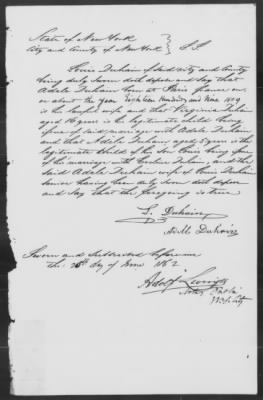 State of New York
City and County of New York } S.S
Louis Duhain of said city and County
being duly sworn doth depose and say that
Adele Duhain born at Paris france on
or about the year Eighteen Hundred and nine 1809
is his lawful wife and that Virginia Duhain
aged 16 years is his legitimate child being
issue of said marriage with Adele Duhain
and that Adele Duhain, aged 8 years is the
legitimate child of his son Louis being issue
of his marriage with Duhain, and the
said Adele Duhain wife of Louis Duhain
Senior having been duly sworn doth depose
and say that the foregoing is true
L. Duhain
A. M. Duhain
Sworn and Subscribed before me
this 28th day of June 1862
Adolf
Notary Public
N.Y. City